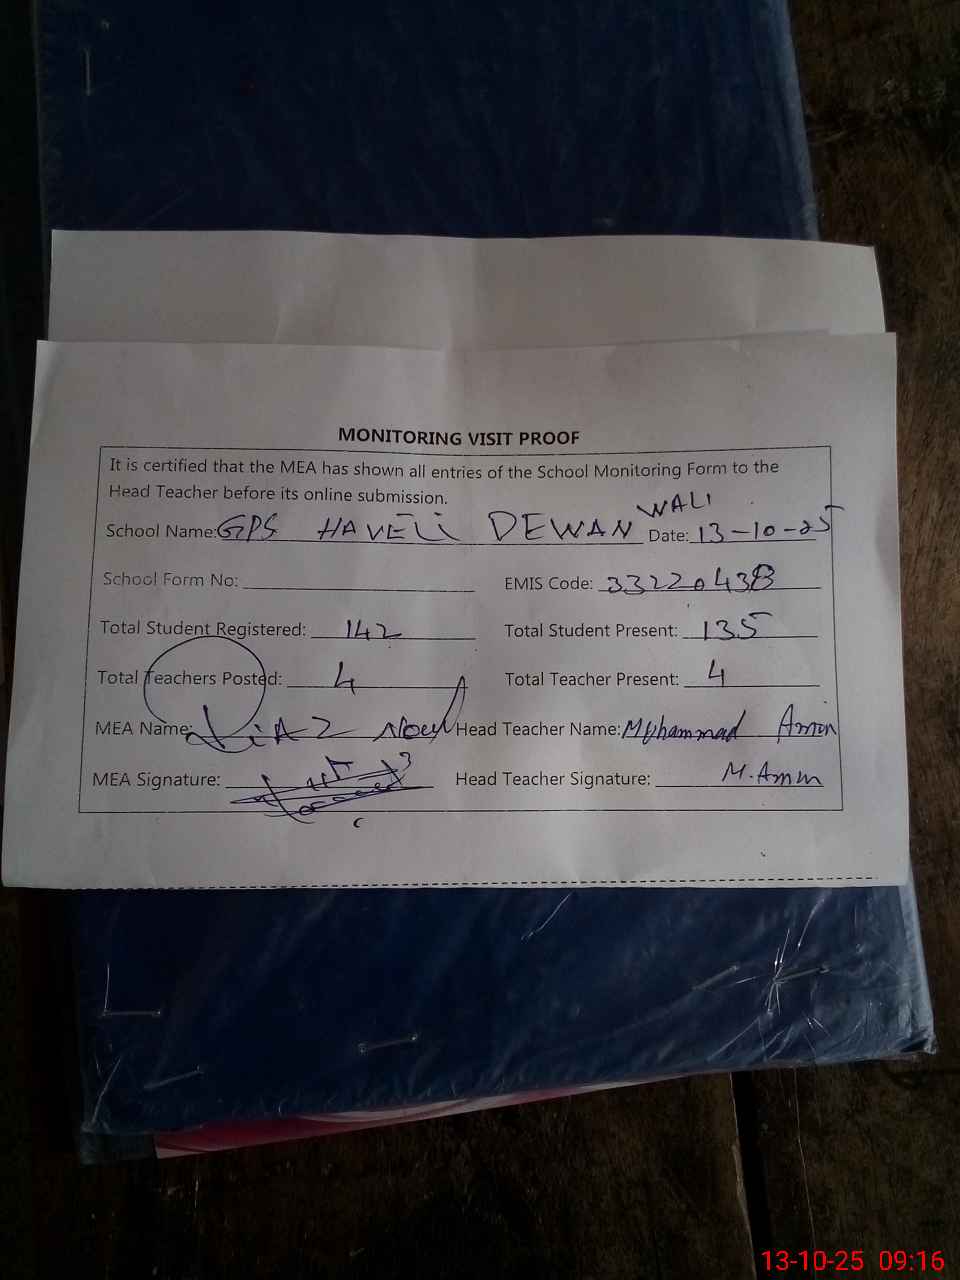 MONITORING VISIT PROOF
It is certified that the MEA has shown all entries of the School Monitoring Form to the
Head Teacher before its online submission.
School Name: GPS HAVELI DEWAN WALI Date: 13-10-25
School Form No:
EMIS Code: 33220438
Total Student Registered: 142
Total Student Present: 135
Total Teachers Posted: 4
Total Teacher Present: 4
MEA Name:
Head Teacher Name: Muhammad Amin
MEA Signature:
Head Teacher Signature: M. Amin
13-10-25 09:16